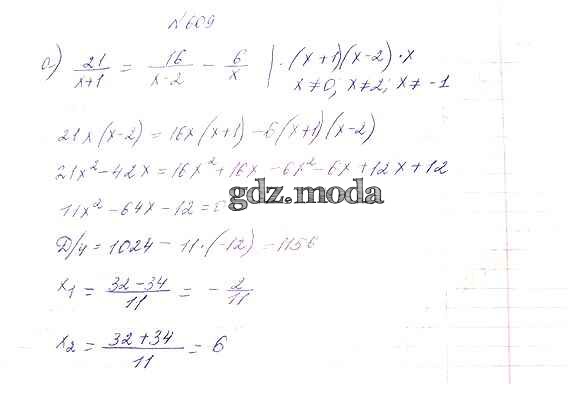 №609
а) 21/(x+1) = 16/(x-2) - 6/x | ·(x+1)(x-2)·x
x≠0; x≠2; x≠-1
21x(x-2) = 16x(x+1) -6(x+1)(x-2)
21x² -42x = 16x² + 16x -6x² -6x +12x +12
gdz.moda
11x² -64x -12 =
Д/4 = 1024 - 11·(-12) = 1156
x₁ = (32-34)/11 = -2/11
x₂ = (32+34)/11 = 6